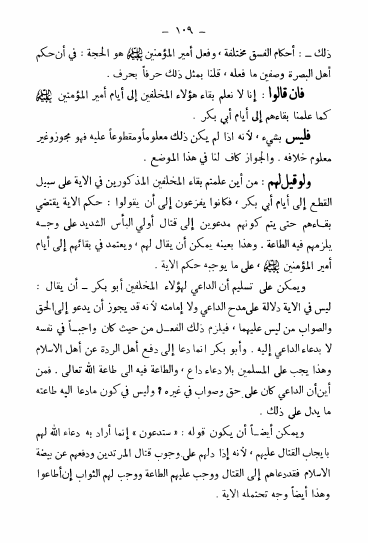 ـ ١٠٩ ـ
ذلك ـ : أحكام الفسق مختلفة ، وفعل أمير المؤمنين عليه السلام هو الحجة : في أن حكم
أهل البصرة وصفين ما فعله ، قلنا بمثل ذلك حرفاً بحرف .
فان قالوا : إنا لا نعلم بقاء هؤلاء المخلفين إلى أيام أمير المؤمنين عليه السلام
كما علمنا بقاءهم إلى أيام أبي بكر .
فليس بشيء ، لأنه اذا لم يكن ذلك معلوماً ومقطوعاً عليه فهو مجوز وغير
معلوم خلافه . والجواز كاف لنا في هذا الموضع .
ولو قيل لهم : من أين علمتم بقاء المخلفين المذكورين في الاية على سبيل
القطع إلى أيام أبي بكر ، فكانوا يفزعون إلى أن يقولوا : حكم الاية يقتضي
بقاءهم حتى يتم كونهم مدعوين إلى قتال أولي البأس الشديد على وجه
يلزمهم فيه الطاعة . وهذا بعينه يمكن أن يقال لهم ، ويعتمد في بقائهم إلى أيام
أمير المؤمنين عليه السلام ، على ما يوجبه حكم الاية .
ويمكن على تسليم أن الداعي لهؤلاء المخلفين أبو بكر ـ أن يقال :
ليس في الاية دلالة على مدح الداعي ولا إمامته لأنه قد يجوز أن يدعو إلى الحق
والصواب من ليس عليهما ، فيلزم ذلك الفعل من حيث كان واجباً في نفسه
لا بدعاء الداعي إليه . وأبو بكر انما دعا إلى دفع أهل الردة عن أهل الاسلام
وهذا يجب على المسلمين بلا دعاء داع ، والطاعة فيه الى طاعة الله تعالى . فمن
أين أن الداعي كان على حق وصواب في غيره ؟ وليس في كون مادعا اليه طاعته
ما يدل على ذلك .
ويمكن أيضاً أن يكون قوله : « ستدعون » إنما أراد به دعاء الله لهم
بايجاب القتال عليهم ، لأنه إذا دلهم على وجوب قتال المرتدين ودفعهم عن بيضة
الاسلام فقد دعاهم إلى القتال ووجب عليهم الطاعة ووجب لهم الثواب إن أطاعوا
وهذا أيضاً وجه تحتمله الاية .